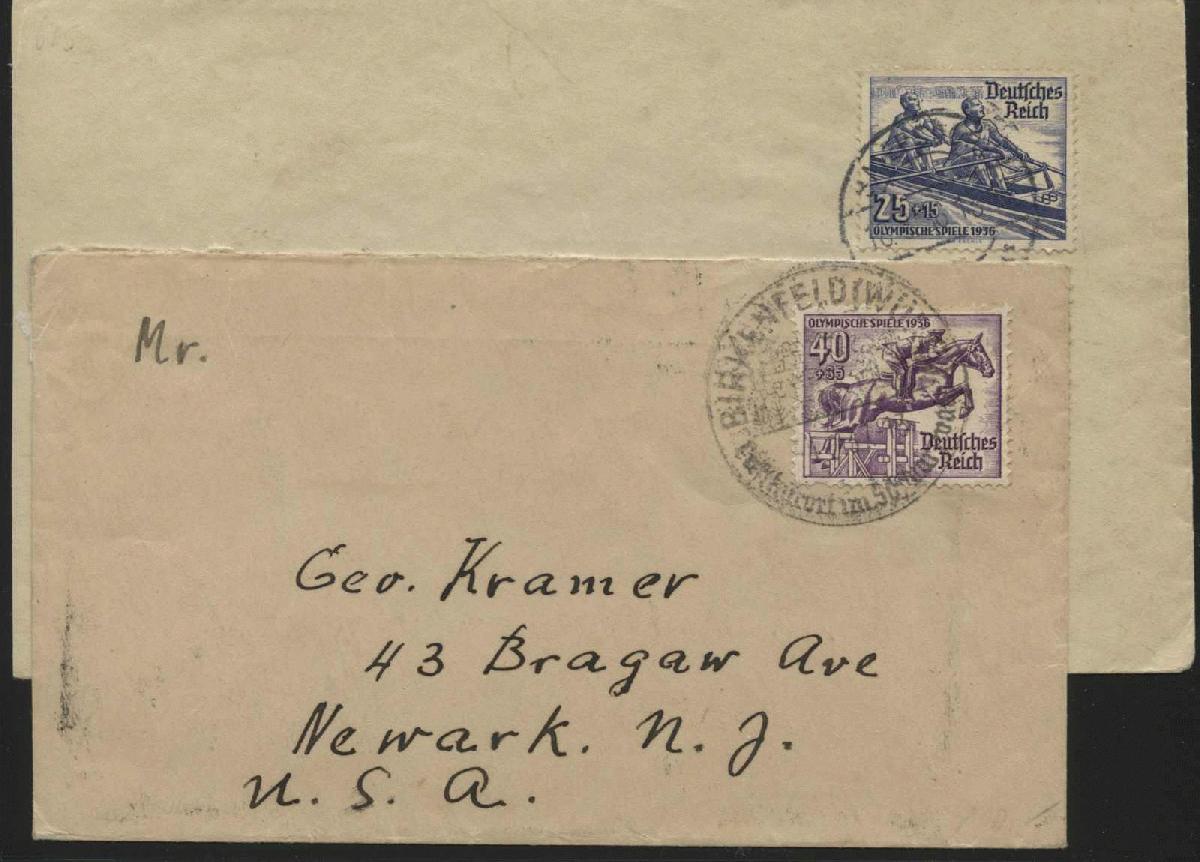 Deutsches
Reich
25+15
OLYMPISCHE SPIELE 1936
BIRKENFELD (WÜ
Luftkurort im
OLYMPISCHE SPIELE 1936
40
+35
Deutsches
Reich
Mr.
Geo. Kramer
43 Bragaw Ave
Newark. N. J.
U. S. A.